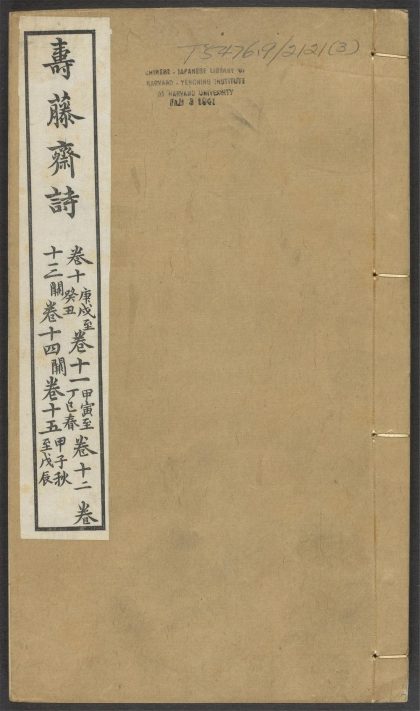 T5476.9/2121(3)
CHINESE - JAPANESE LIBRARY OF
HARVARD - YENCHING INSTITUTE
AT HARVARD UNIVERSITY
壽藤齋詩
卷十庚戌至癸丑卷十一甲寅至丁巳春卷十二卷
十三闕卷十四闕卷十五甲子秋至戊辰